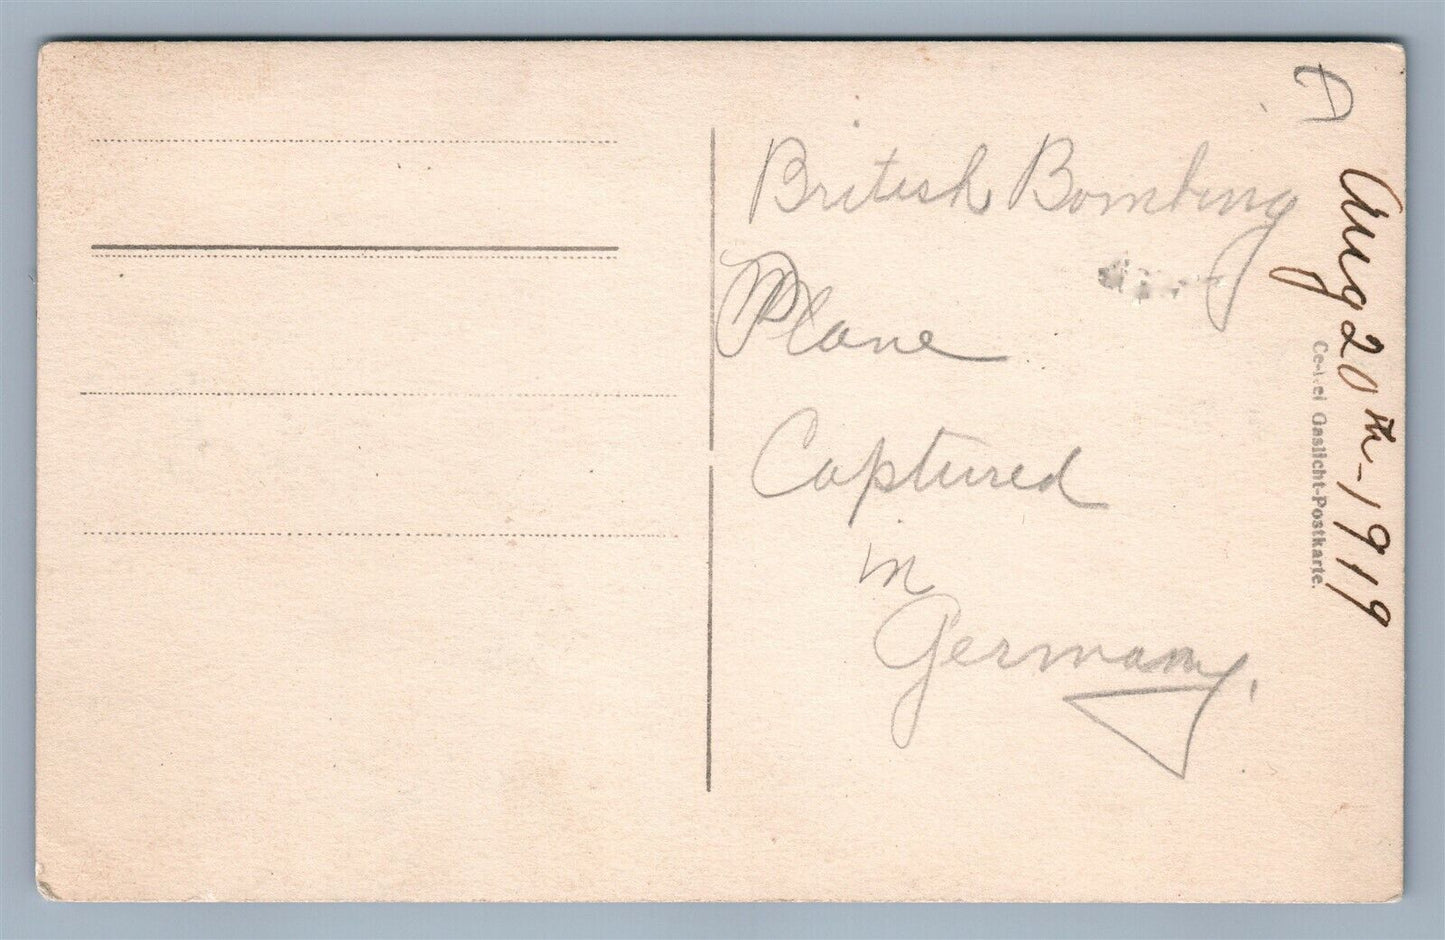 British Bombing
Plane
Captured
in
Germany.
Aug 20th - 1919
Gaslicht-Postkarte.